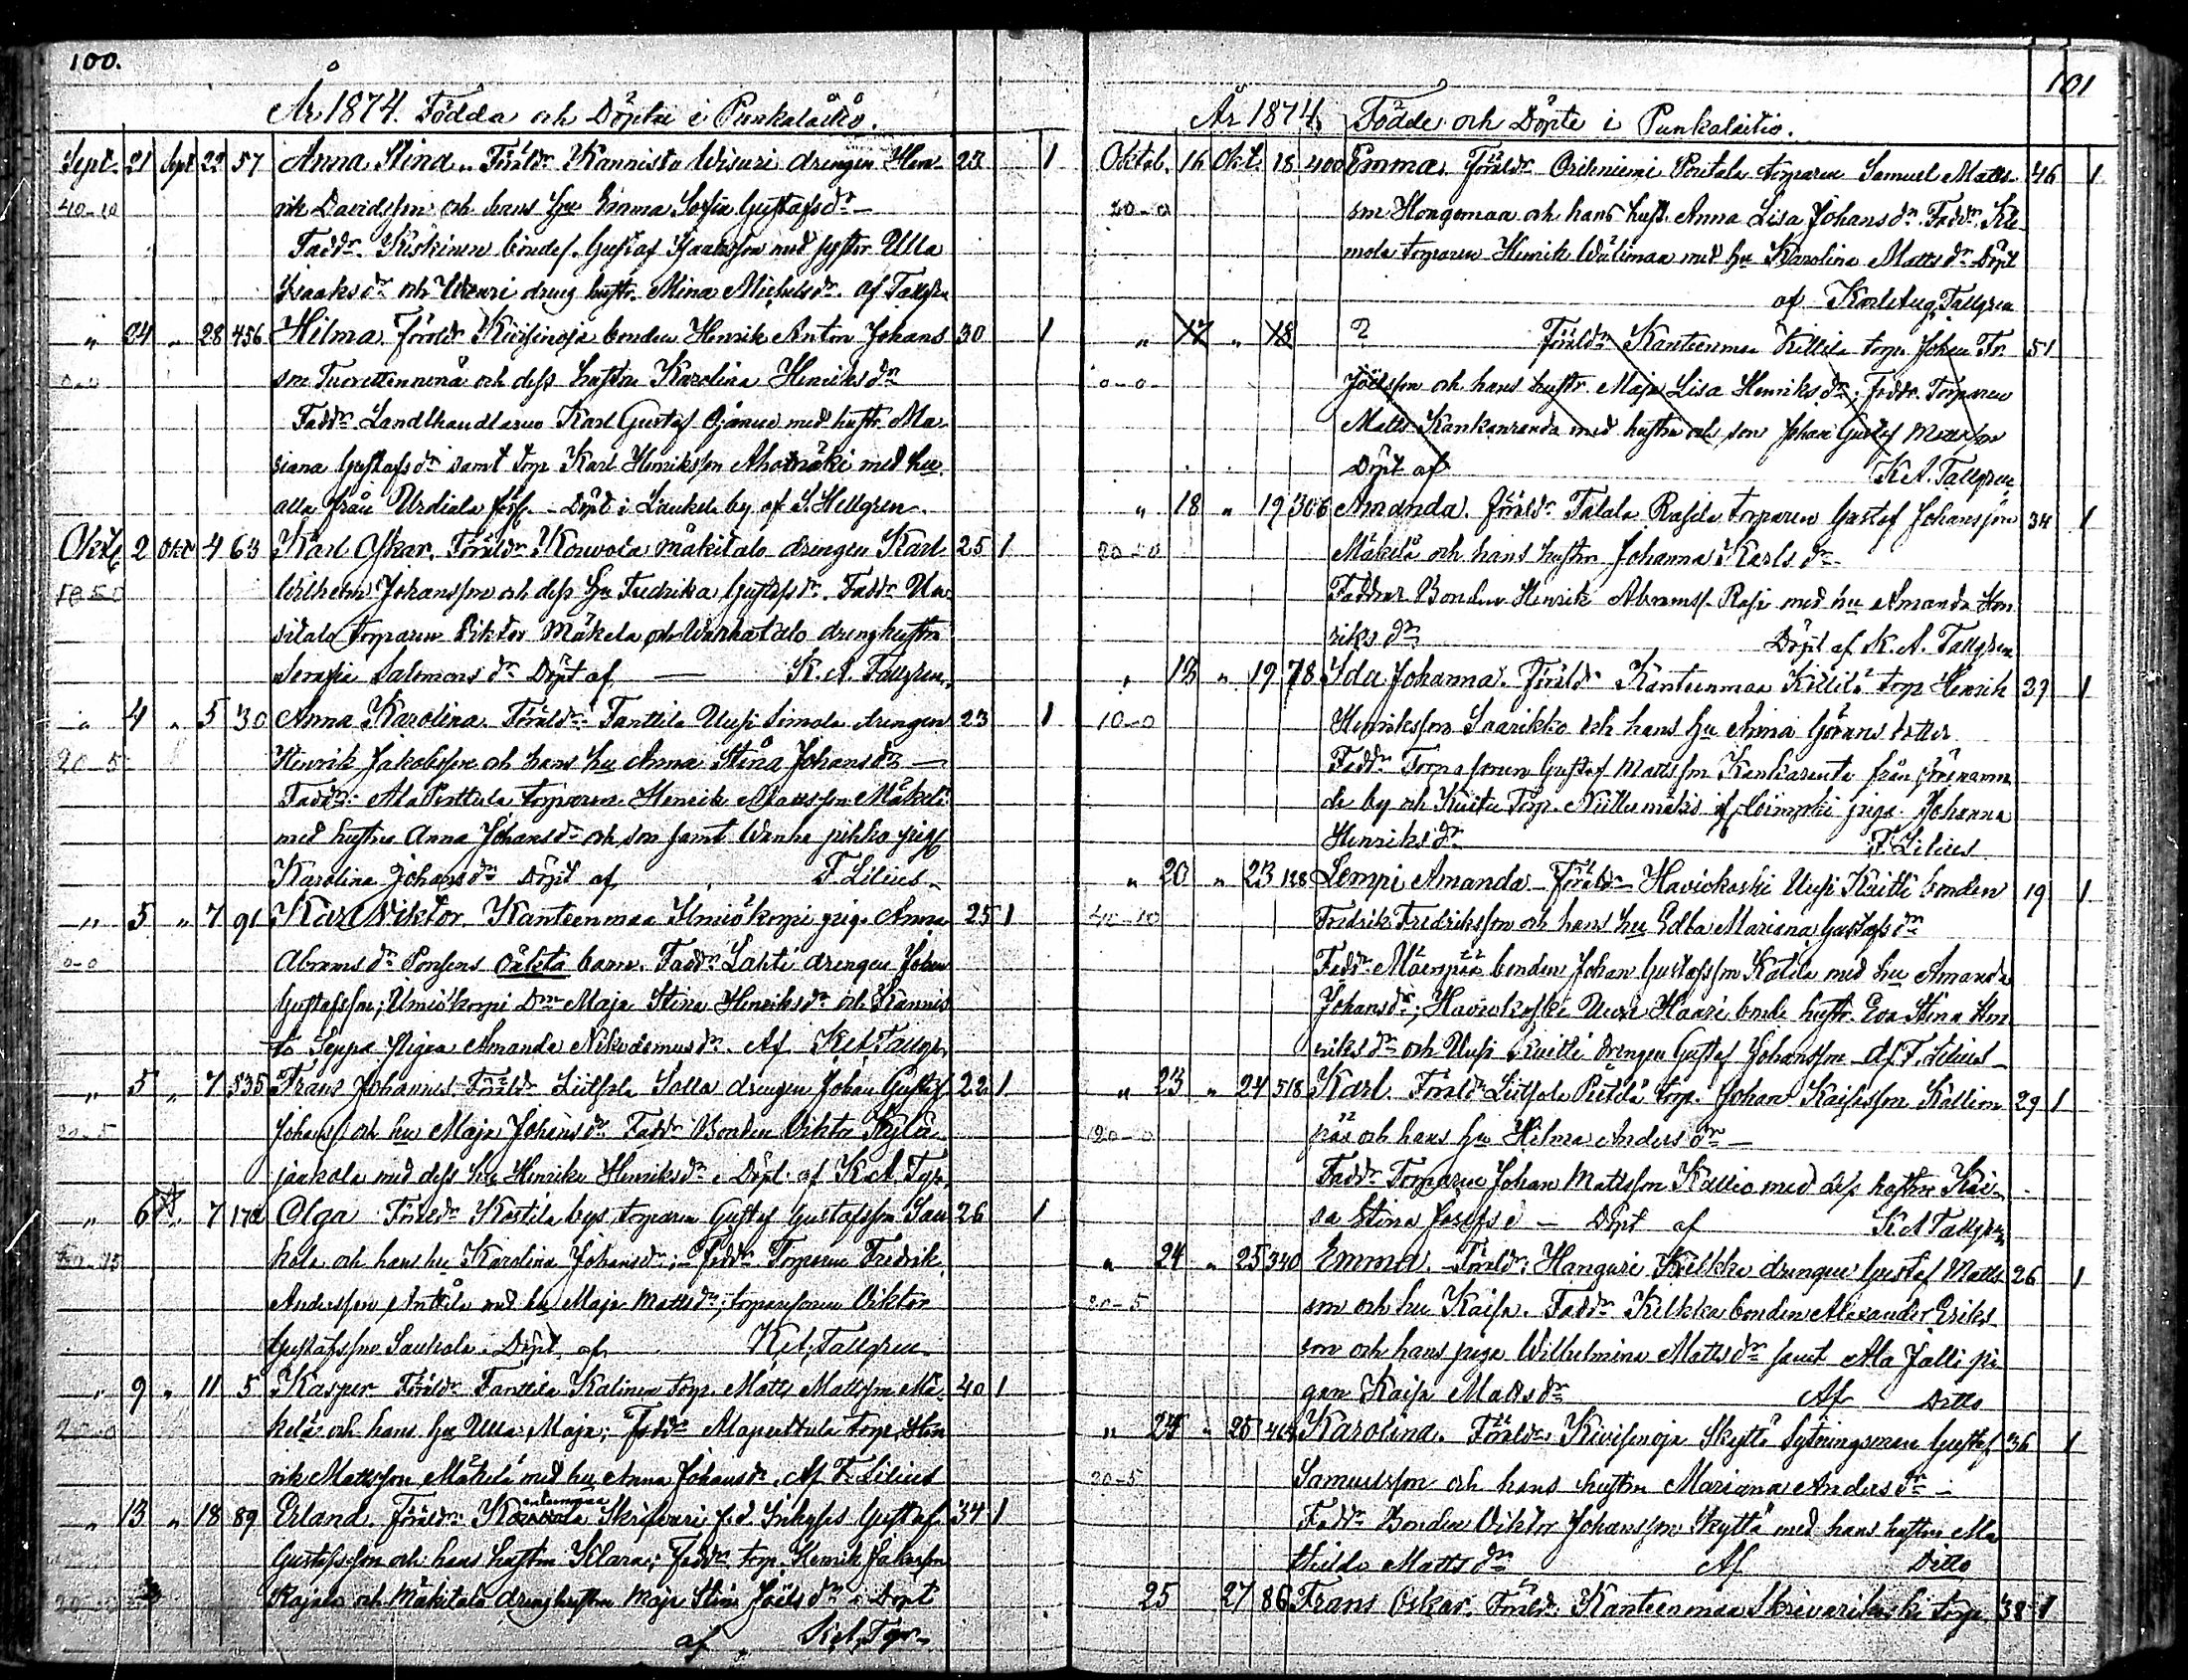 100.
År 1874. Födda och Döpta i Punkalaitio.
Sept. 21 Sept 22 57 Anna Stina. Föräldr. Kannisto Wisuri drengen Hen- 22 1
40-10 rik Davidsson och hans hu Emma Sofia Gustafsdr
Faddr. Kiiskinen bondes. Gustaf Isaaksson med systr Ulla
Isaaksdr och Uusi dreng hustr. Mina Michelsdr. af Tallgren
" 24 " 28 456 Hilma. Föräldr Kivisenoja bonden Henrik Anton Johans 30 1
0-0 son och dess hustru Karolina Henriksdr
Faddr Landthandlaren Karl Gustaf med hustr Ma-
riana Gustafsdr samt torp Karl Henriksson Ahomäki med hu
alla från Urdiala förs. Döpt i Laukela by af S. Hellgren.
Oktb 2 Okt 4 63 Karl Oskar. Föräldr Kouvola Mäkitalo drengen Karl 25 1
10-50 Wilhelm Johansson och dess hu Fredrika Gustafsdr. Faddr Uu-
sitalo torparen Viktor Mäkelä och Wanhatalo drenghustru
Serafia Salomonsdr Döpt af K. A. Tallgren.
" 4 " 5 30 Anna Karolina. Föräldr Tanttila Uusi Simola drengen 23 1
20-5 Henrik Jakobsson och hans hu Anna Stina Johansdr
Faddr: Ala Perttula torparen Henrik Mattsson Mäkelä
med hustru Anna Johansdr och son samt Wanha pihko pig
Karolina Johansdr Döpt af F. Lilius
" 5 " 7 91 Karl Viktor. Kanteenmaa Ilmiökorpi pig. Anna 25 1
0-0 Abramsdr Ponsens oäkta barn. Faddr Lahti drengen Johan
Gustafsson; Ilmiökorpi Drn Maja Stina Henriksdr och Kannis-
to Seppa pigan Amanda Nikodemusdr. Af K. A. Tallgr.
" 5 " 7 535 Frans Johannes. Föräldr Liitsola Salla drengen Johan Gustaf 22 1
20-5 Johanss och hu Maja Johansdr. Faddr Bonden Viktor Kylä-
jaakola med dess hu Henrika Henriksdr. Döpt af K. A. Tgr.
" 6 " 7 172 Olga Föräldr Kostila bys torparen Gustaf Gustafsson Sau- 26 1
kola och hans hu Karolina Johansdr; Faddr Torparen Fredrik
Andersson Anttila med hu Maja Mattsdr; torparesonen Viktor
Gustafsson Saukola. Döpt af K. A. Tallgren
" 9 " 11 5 Kasper Föräldr Tanttila Kalinen torp. Matts Mattsson Mä- 40 1
20-0 kelä och hans hu Ulla Maja; Faddr Alaperttula torp. Hen
rik Mattsson Mäkelä med hu Anna Johansdr. Af F. Lilius
" 13 " 18 89 Erland. Föräldr Kanteenmaa Skrifvari f.d. Inhyses Gustaf 34 1
Gustafsson och hans hustru Klara; Faddr torp. Henrik
Rajala och Mäkitalo drenghustru Maja Stina Joëlsdr Döpt
af K. A. Tgr
101
År 1874. Födde och Döpte i Punkalaitio.
Oktob. 16 Okt. 18 400 Emma. Föräldr Oriniemi Pouttala torparen Samuel Matts- 46 1
20-0 son Hongonmaa och hans hust. Anna Lisa Johansdr. Faddr. Kle-
mola torparen Henrik Wälimaa med hu Karolina Mattsdr Döpt
af Karl Aug. Tallgren
" 17 " 18 ? Föräldr Kanteenmaa Killilä torp. Johan Fr. 51
0-0 Joëlsson och hans hustr. Maja Lisa Henriksdr; Faddr. Torparen
Matts Kankaanranda med hustru och son Johan Gustaf Mattsson
Döpt af K. A. Tallgren
" 18 " 19 306 Amanda. Föräldr Talala Rasila torparen Gustaf Johansson 34 1
20-0 Mäkelä och hans hustru Johanna Karlsdr
Faddrar Bonden Henrik Abramss. Rasi med hu Amanda Hen-
riksdr Döpt af K. A. Tallgren
" 18 " 19 78 Ida Johanna. Föräldr Kanteenmaa Killilä torp Henrik 29 1
10-0 Henriksson Saarikko och hans hu Anna Görans dotter
Faddr Torparesonen Gustaf Mattsson Kankaranta från förenämn-
de by och Torp. Niittumäki piga Johanna
Henriksdr F. Lilius
" 20 " 23 128 Lempi Amanda Föräldr Haviokoski Uusi Kuitti bonden 19 1
40-20 Fredrik Fredriksson och hans hu Edla Mariana Gustafsdr
Faddr Mäenpää bonden Johan Gustafsson Katila med hu Amanda
Johansdr; Haviokoski Uusi Haari bonde hustr. Eva Stina Hen-
riksdr och Uusi Kuitti drengen Gustaf Johansson Af F. Lilius
" 23 " 24 518 Karl. Föräldr Liitsola Pietilä torp. Johan Kaisasson Kallion- 29 1
20-0 pää och hans hu Hilma Andersdr
Faddr Torparen Johan Mattsson Kallio med dess hustru Kai-
sa Stina Josefsd Döpt af K. A. Tallgren
" 24 " 25 340 Emma. Föräldr: Hanguri Kilkka drengen Gustaf Matts 26 1
20-5 son och hu Kaisa. Faddr Kilkka bonden Alexander Eriks
son och hans piga Wilhelmina Mattsdr samt Ala Jalli pi
gan Kaisa Mattsdr Af Ditto
" 24 " 25 464 Karolina. Föräldr Kivisenoja Skyttä Sytningsman Gustaf 36 1
20-5 Samuelsson och hans hustru Mariana Andersdr
Faddr Bonden Viktor Johansson Skyttä med hans hustru Ma
thilda Mattsdr Af Ditto
25 27 86 Frans Oskar. Föräldr Kanteenmaa Skrivarikoski torp. 38 1